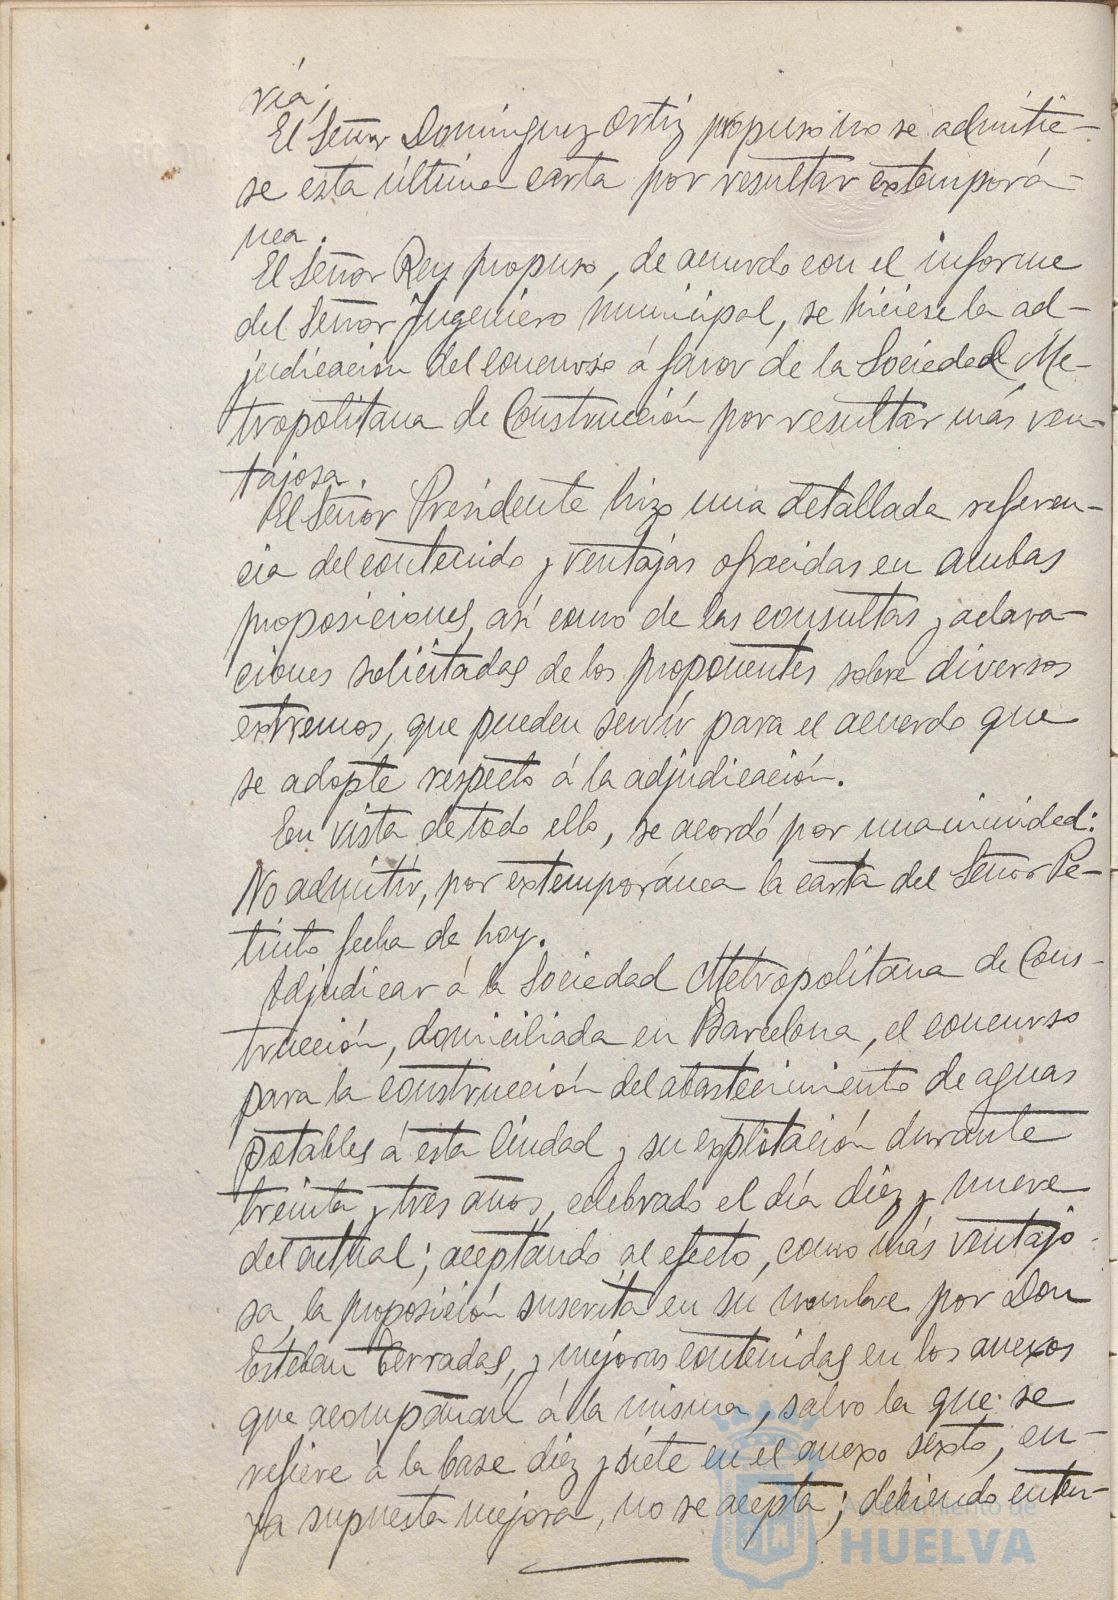 ría;
El Señor Domínguez Ortiz propuso no se admitie-
se esta última carta por resultar extemporá-
nea.
El Señor Rey propuso, de acuerdo con el informe
del Señor Ingeniero municipal, se hiciese la ad-
judicación del concurso á favor de la Sociedad Me-
tropolitana de Construcción por resultar más ven-
tajosa.
El Señor Presidente hizo una detallada referen-
cia del contenido y ventajas ofrecidas en ambas
proposiciones, así como de las consultas y aclara-
ciones solicitadas de los proponentes sobre diversos
extremos, que pueden servir para el acuerdo que
se adopte respecto á la adjudicación.
En vista de todo ello, se acordó por unanimidad:
No admitir, por extemporánea la carta del Señor Pe-
tinto fecha de hoy.
Adjudicar á la Sociedad Metropolitana de Cons-
trucción, domiciliada en Barcelona, el concurso
para la construcción del abastecimiento de aguas
potables á esta Ciudad y su explotación durante
treinta y tres años, celebrado el día diez y nueve
del actual; aceptando al efecto, como más ventajo-
sa, la proposición suscrita en su nombre por Don
Esteban Terradas, y mejoras contenidas en los anexos
que acompañan á la misma, salvo la que se
refiere á la base diez y siete en el anexo sexto, cu-
ya supuesta mejora, no se acepta; debiendo enten-
Ayuntamiento de
HUELVA